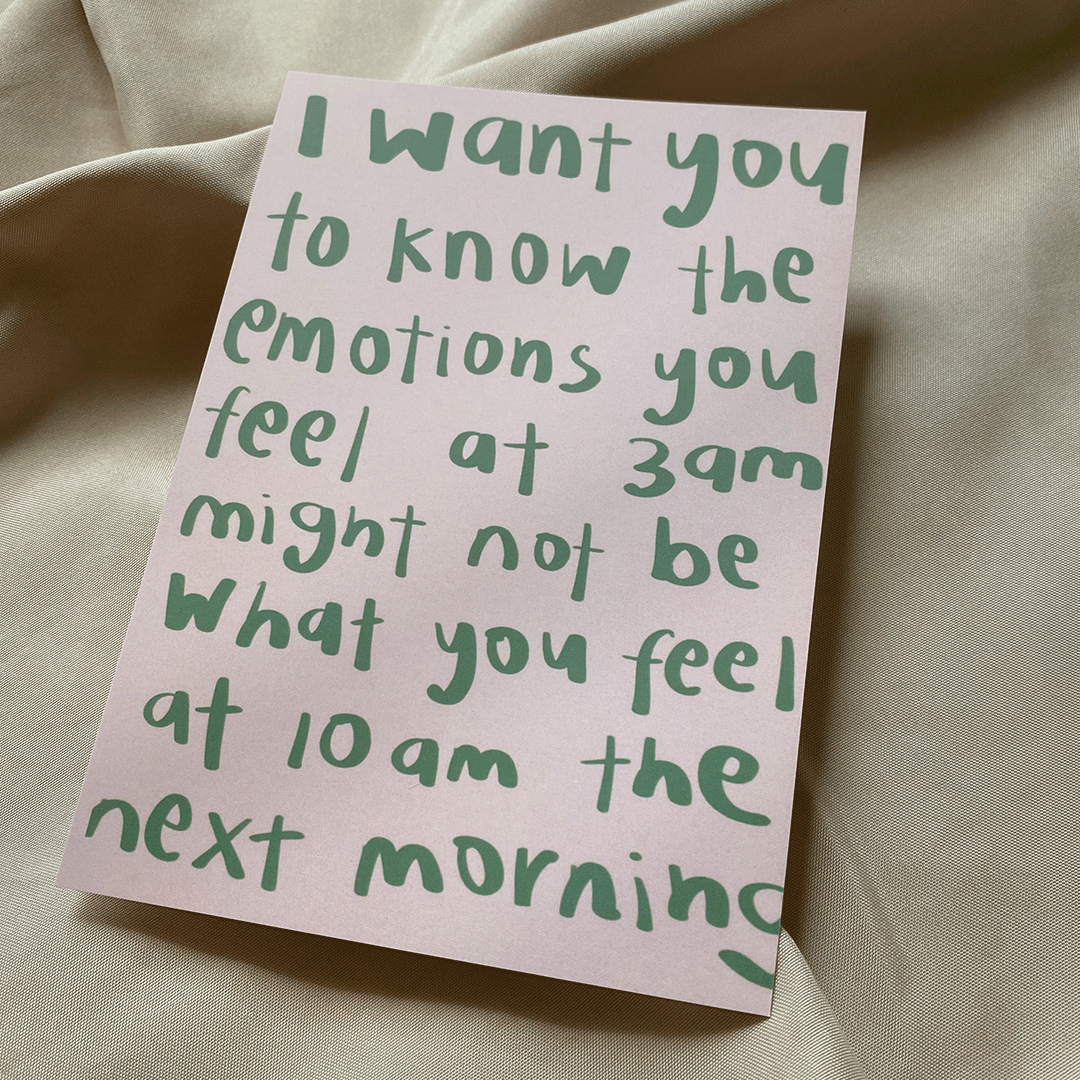 I want you
to know the
emotions you
feel at 3am
might not be
what you feel
at 10am the
next morning